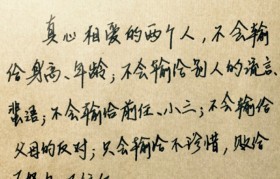 真心相爱的两个人，不会输
给身高、年龄；不会输给别人的流言
蜚语；不会输给前任、小三；不会输给
父母的反对；只会输给不珍惜，败给